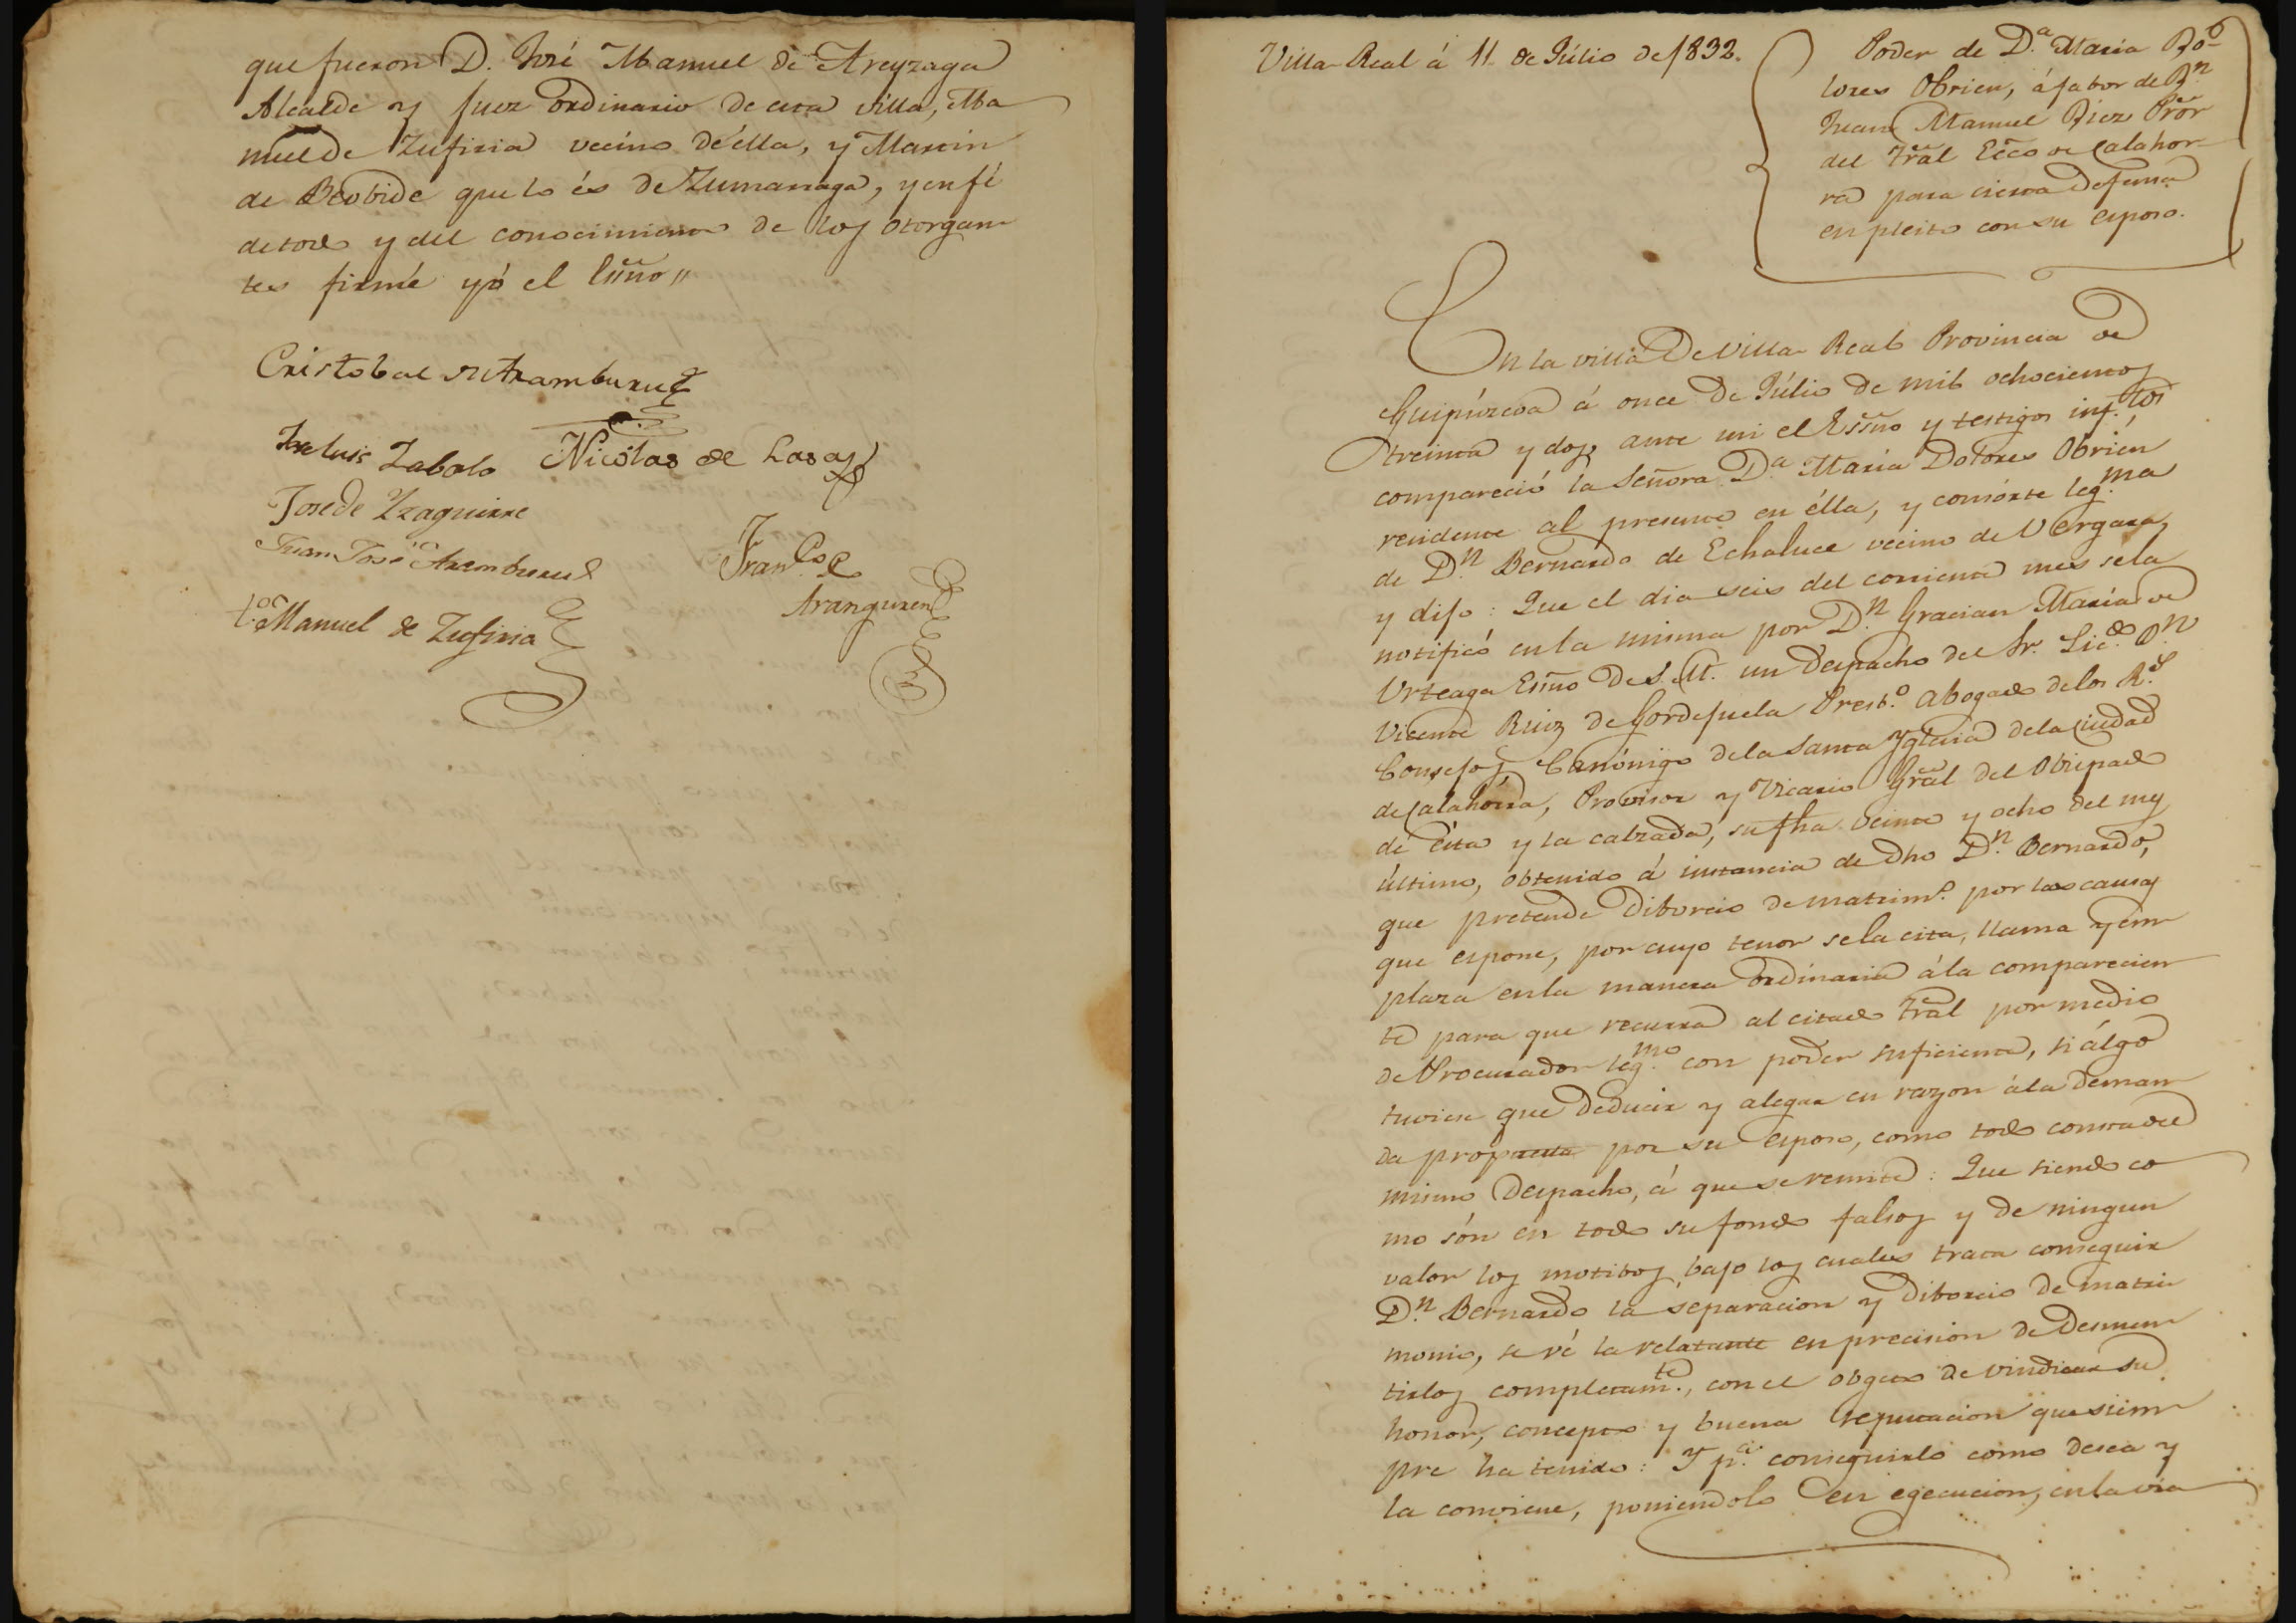 que fueron D. José Manuel de Areyzaga
Alcalde y Juez ordinario de esta villa, Ma
nuel de Zufiria vecino de élla, y Martin
de Beobide que lo és de Zumarraga, y en fé
de todo y del conocimiento de los otorgan
tes firmé yó el Essño,,
Cristobal de Aramburu
Jse Luis Zabalo Nicolas de Lasa
Jose de Yzaguirre
Juan José Aramburu
Franco.
Aranguren
t.º Manuel de Zufiria
Villa Real á 11 de Júlio de 1832.
Poder de D.ª Maria Do
lores Obrien, á fabor de Dn
Juan Manuel Diez Pror
del Tral Ecco de Calahor
ra para cierta defensa
en pleito con su esposo.
En la villa de Villa Real Provincia de
Guipúzcoa á once de Júlio de mil ochocientos
treinta y dos, ante mi el Essño y testigos inf.tos
compareció la Señora D.ª Maria Dolores Obrien
residente al presente en élla, y consórte leg.ma
de D.n Bernardo de Echaluce vecino de Vergara,
y dijo: Que el dia seis del corriente mes se la
notificó en la misma por D.n Gracian Maria de
Urteaga Essño de S. M. un despacho del Sr. Lic.do D.n
Vicente Ruiz de Gordejuela Presb.º Abogado de los R.s
Consejos, Canónigo de la Santa Yglesia de la Ciudad
de Calahorra, Provisor y Vicario Gral del Obispado
de ésta y la calzada, su fha veinte y ocho del mes
último, obtenido á instancia de dho D.n Bernardo,
que pretende diborcio de matrim.º por las causas
que espone, por cuyo tenor se la cita, llama y em
plaza en la manera ordinaria á la comparecien
te para que recurra al citado Tral por medio
de Procurador leg.mo con poder suficiente, si álgo
tuviere que deducir y alegar en razon á la deman
da propuesta por su esposo, como todo consta de el
mismo despacho, á que se remite: Que siendo co
mo són en todo su fondo falsos y de ningun
valor los motibos, bajo los cuales trata conseguir
D.n Bernardo la separacion y diborcio de matri
monio, se vé la relatante en precision de desmen
tirlos completam.te, con el objeto de vindicar su
honor, concepto y buena reputacion que siem
pre ha tenido: Y p.ª conseguirlo como desea y
la conviene, poniendolo en egecucion, en la via